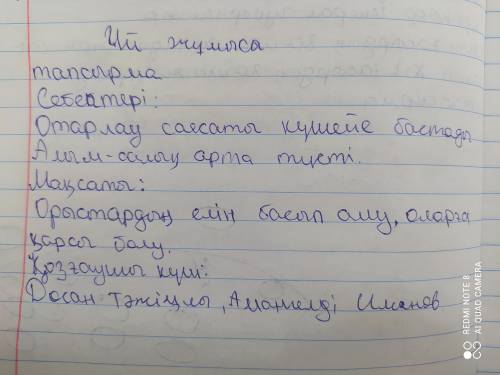 Үй жұмысы
тапсырма
Себептері:
Отарлау саясаты күшейе бастады
Алым-салық арта түсті.
Мақсаты:
Орыстардың елін басып алу, оларға
қарсы болу.
Қозғаушы күші:
Досан Тәжіұлы, Аманкелді Иманов
REDMI NOTE 8
AI QUAD CAMERA